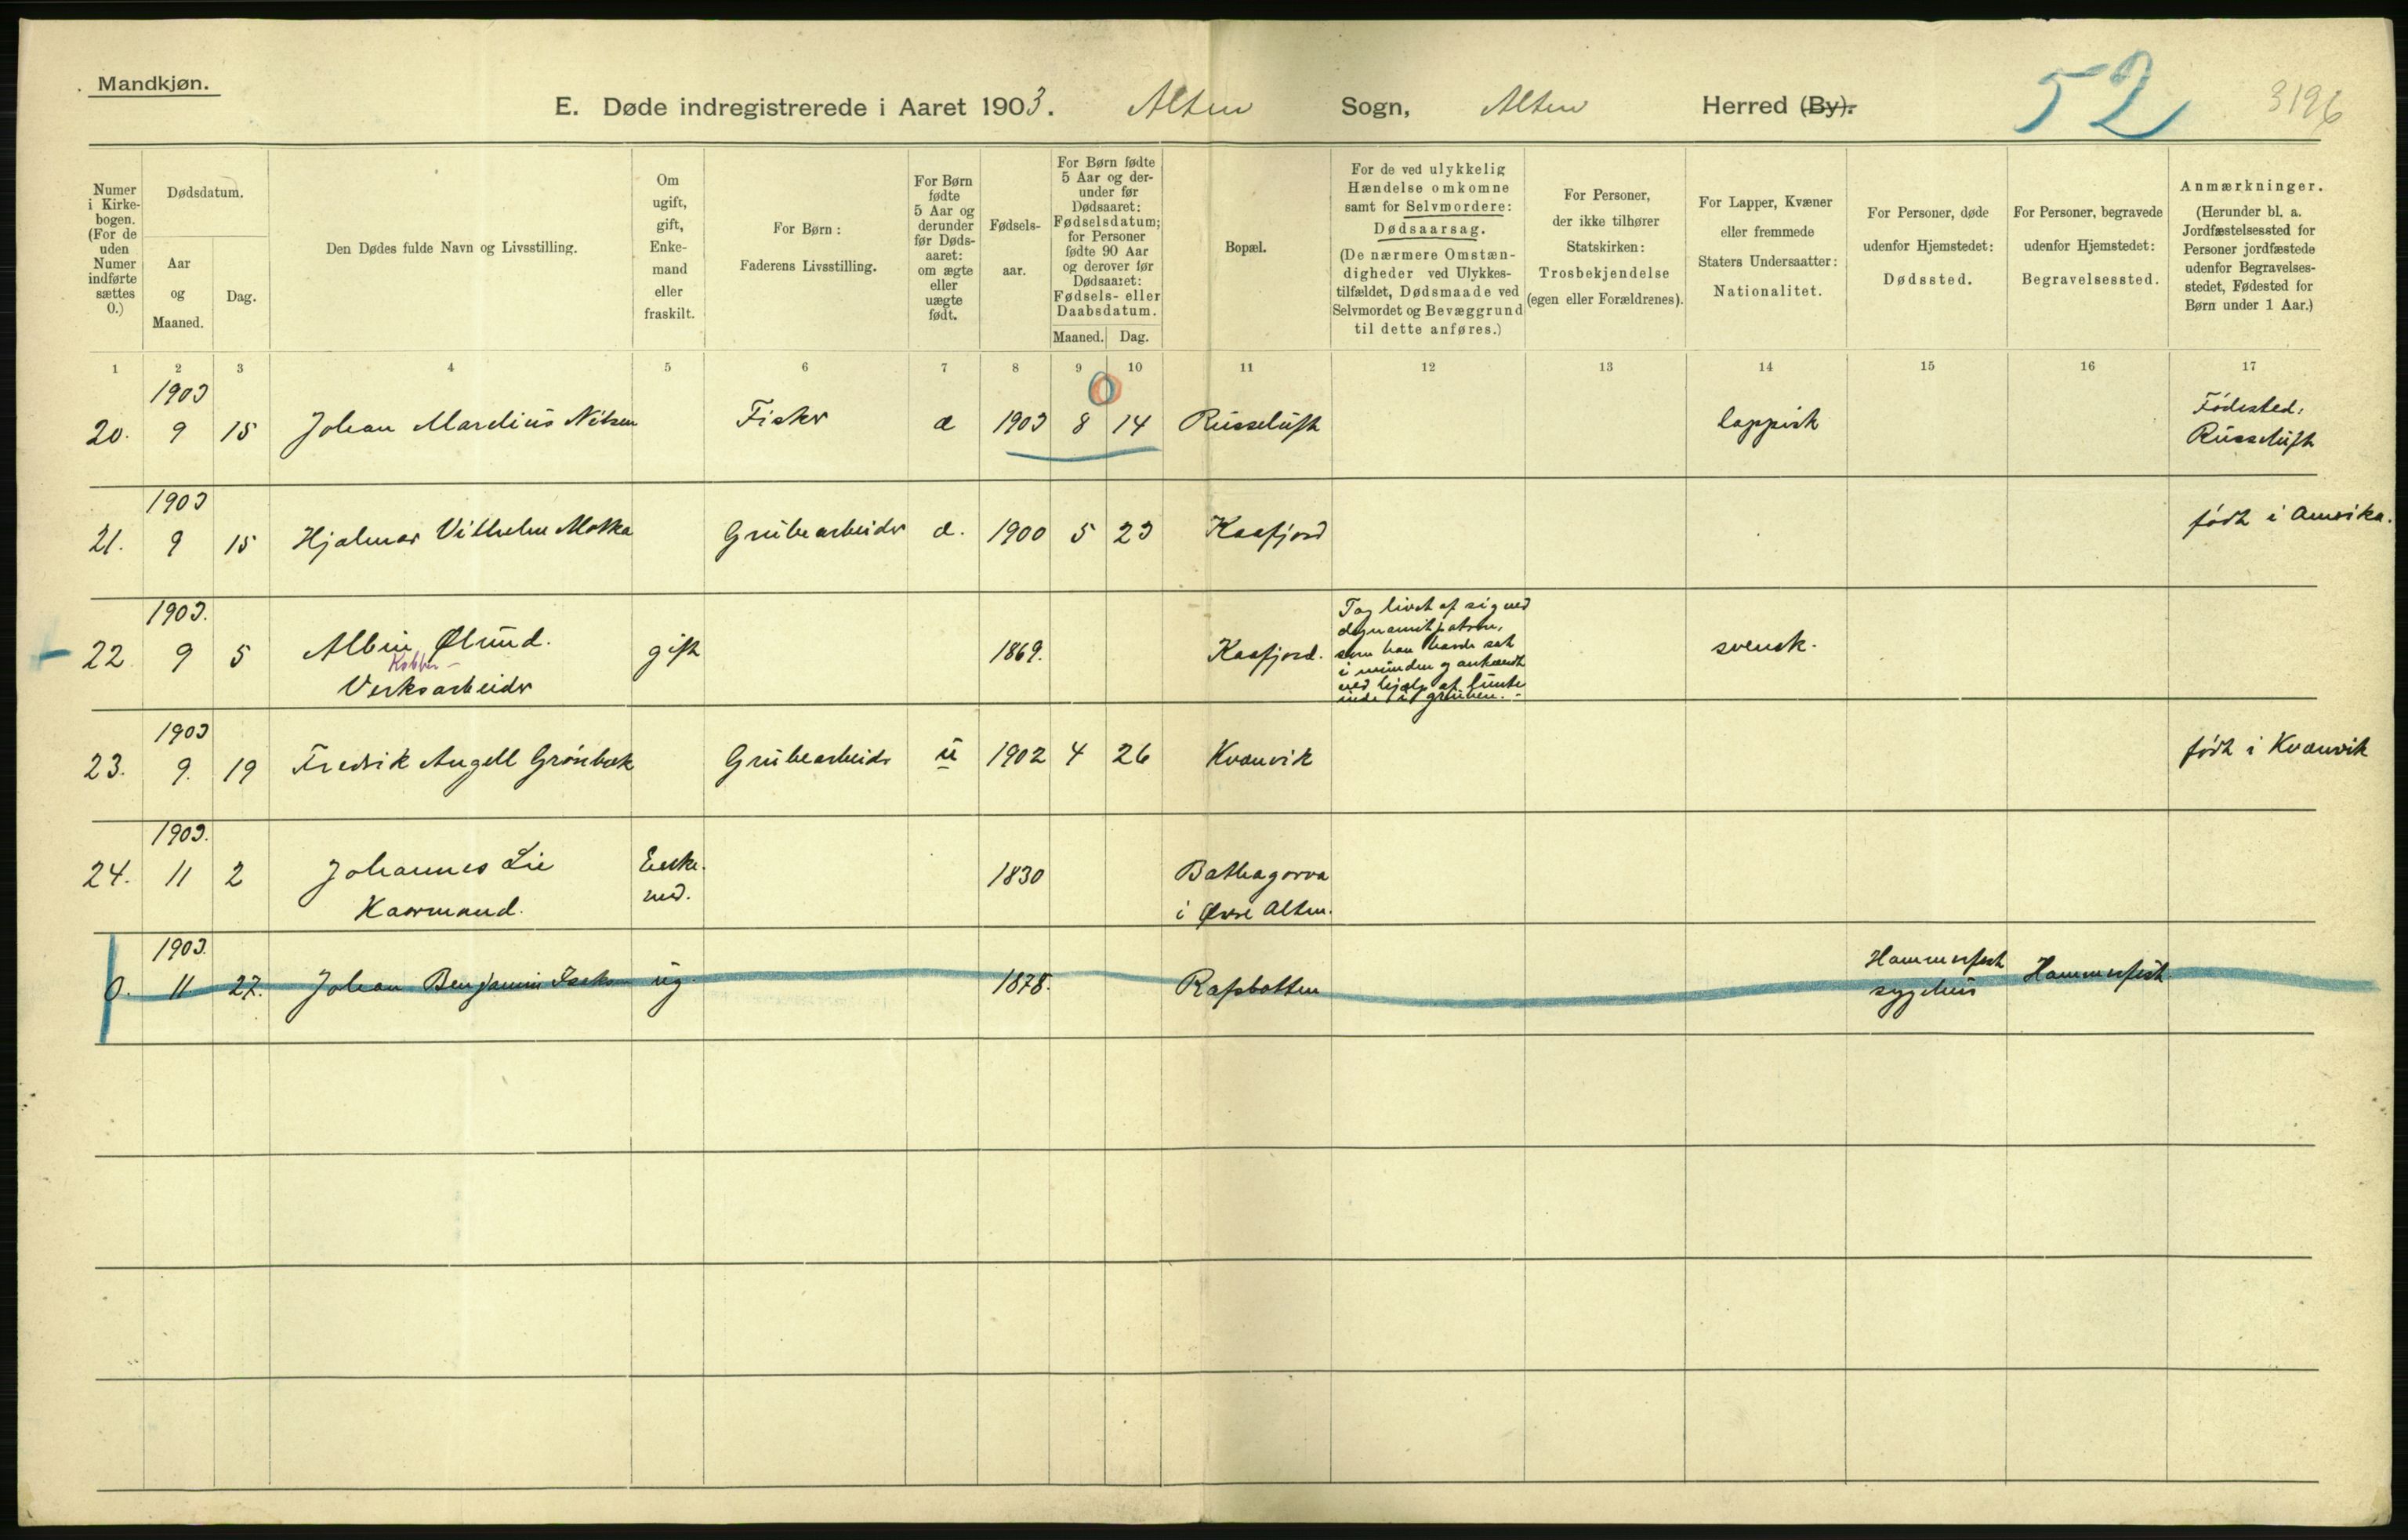 Mandkjøn.
E. Døde indregistrerede i Aaret 1903. Alten Sogn, Alten Herred (By).
52
3196
Numer i Kirkebogen. (For de uden Numer indførte sættes 0.)
Dødsdatum.
Aar og Maaned.
Dag.
Den Dødes fulde Navn og Livsstilling.
Om ugift, gift, Enkemand eller fraskilt.
For Børn:
Faderens Livsstilling.
For Børn fødte 5 Aar og derunder før Dødsaaret: om ægte eller uægte født.
Fødselsaar.
For Børn fødte 5 Aar og derunder før Dødsaaret: Fødselsdatum; for Personer fødte 90 Aar og derover før Dødsaaret: Fødsels- eller Daabsdatum.
Maaned. Dag.
Bopæl.
For de ved ulykkelig Hændelse omkomne samt for Selvmordere: Dødsaarsag.
(De nærmere Omstændigheder ved Ulykkestilfældet, Dødsmaade ved Selvmordet og Bevæggrund til dette anføres.)
For Personer, der ikke tilhører Statskirken: Trosbekjendelse (egen eller Forældrenes).
For Lapper, Kvæner eller fremmede Staters Undersaatter: Nationalitet.
For Personer, døde udenfor Hjemstedet: Dødssted.
For Personer, begravede udenfor Hjemstedet: Begravelsessted.
Anmærkninger.
(Herunder bl. a. Jordfæstelsessted for Personer jordfæstede udenfor Begravelsesstedet, Fødested for Børn under 1 Aar.)
1 2 3 4 5 6 7 8 9 10 11 12 13 14 15 16 17
1903
0
20. 9 15 Johan Mardius Nilsen Fisker æ 1903 8 14 Russeluft lappisk Fødested:
Russeluft
1903
21. 9 15 Hjalmar Vilhelm Motka Grubearbeider æ. 1900 5 23 Kaafjord født i Amerika.
1903.
22. 9 5 Albin Ølund. gift 1869. Kaafjord. svensk.
Kobber-
Verksarbeider
Tog livet af sig ved
dynamitpatron,
som han havde sat
i munden og antændt
ved hjælp af lunte
inde i gruben.-
1903
23. 9. 19 Fredrik Angell Grønbæk Grubearbeider u 1902 4 26 Kvænvik født i Kvænvik
1903.
24. 11 2 Johannes Lie Enke- 1830
Kaarmand. md.
i Øvre Alten.
1903.
0. 11 27. Johan Benjamin ug. 1878. Rafsbotten Hammerfest Hammerfest.
sygehus